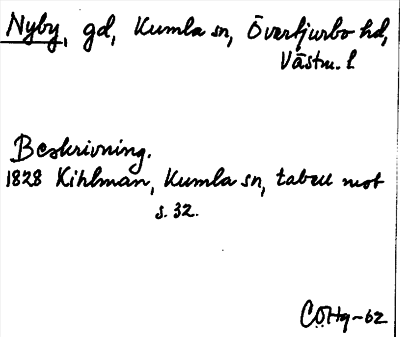 Nyby, gd, Kumla sn, Övertjurbo hd,
Västm. l.
Beskrivning.
1828 Kihlman, Kumla sn, tabell mot
s. 32.
CÖHg-62